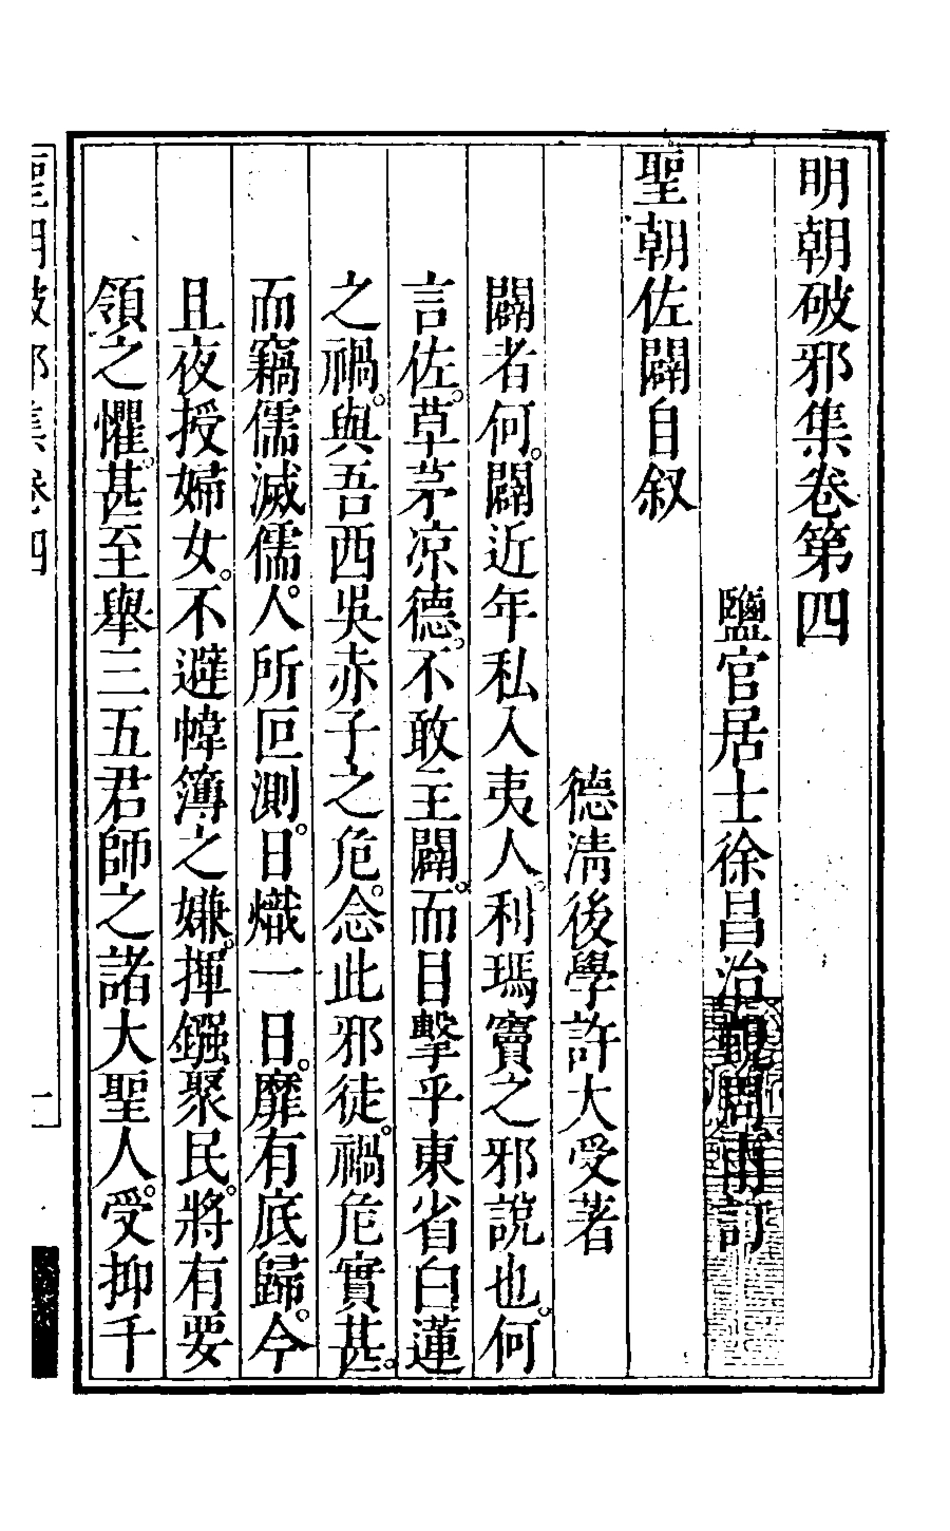 明朝破邪集卷第四
鹽官居士徐昌治覲周甫訂
聖朝佐闢自叙
德清後學許大受著
闢者何。闢近年私入夷人。利瑪竇之邪說也。何
言佐。草茅凉德。不敢主闢。而目擊乎東省白蓮
之禍。與吾西吳赤子之危。念此邪徒。禍危實甚。
而竊儒滅儒。人所叵測。日熾一日。靡有底歸。今
且夜授婦女。不避幃簿之嫌。揮鏹聚民。將有要
領之懼。甚至舉三五君師之諸大聖人。受抑千
聖朝破邪集卷四
一